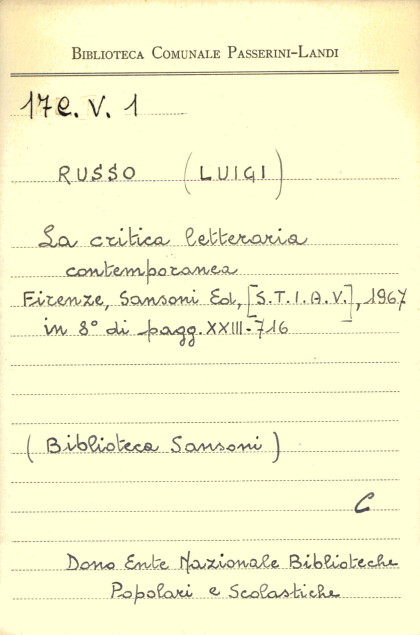 BIBLIOTECA COMUNALE PASSERINI-LANDI
17C. V. 1
RUSSO (LUIGI)
La critica letteraria
contemporanea
Firenze, Sansoni Ed, [S.T.I.A.V.], 1967
in 8° di pagg. XXIII-716
(Biblioteca Sansoni)
C
Dono Ente Nazionale Biblioteche
Popolari e Scolastiche